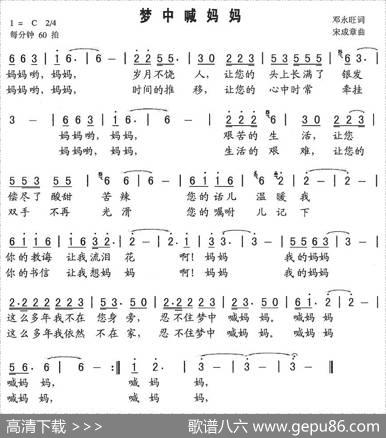 梦中喊妈妈
1 = C 2/4
每分钟 60 拍
邓永旺词
宋成章曲
6 6 3 | 1 6. | 6 - | 2 2 5 5. | 3 0 | 2 2 2 | 1 1 6 1 2. | 6 3. |
妈妈哟,妈妈, 岁月不饶 人, 让您的 头上长满了 银发
妈妈哟,妈妈, 时间的推 移, 让您的 心中时常 牵挂
3 - | 6 6 3 | 1 6. | 6 - | 2 2 2 6 | 5 3 0 | 2 2 3 |
妈妈哟,妈妈, 艰苦的 生 活, 让您
妈妈哟,妈妈, 生活的 艰 难, 让您的
5 5 3 5 | 6 6 | 6 - | 6 1 1 6 | 6 2 | 2 - | 2 - |
偿尽了 酸甜 苦 辣 您的 话儿 温 暖 我
双手 不再 光 滑 您的 嘱咐 儿 记 下
6 1 1 6 | 1 6 3 2. | 2 - | 2 3 | 3 - | 3 - | 5 5 6 3 | 3 - |
你的教诲 让我流泪 花 啊! 妈妈 我的妈妈
你的书信 让我想妈 妈 啊! 妈妈 我的妈妈
2. 2 2 2 2 2 | 5 3. | 5 0 | 2. 2 2 2 2 2 | 2 3. | 5 0 | 6 1. | 3 - | 3 - |
这么多年我不在 您身 旁, 忍 不住梦中 喊妈 妈。 妈妈
这么多年我依然 不在 家, 忍 不住梦中 喊妈 妈。 妈妈
5 6. | 6 - | 6 - :‖ 1 2. | 3 - | 3 - | 3 - ‖
喊妈 妈, 喊 妈 妈,
喊妈 妈, 喊 妈 妈。
高清下载 >>>
歌谱八六 www.gepu86.com